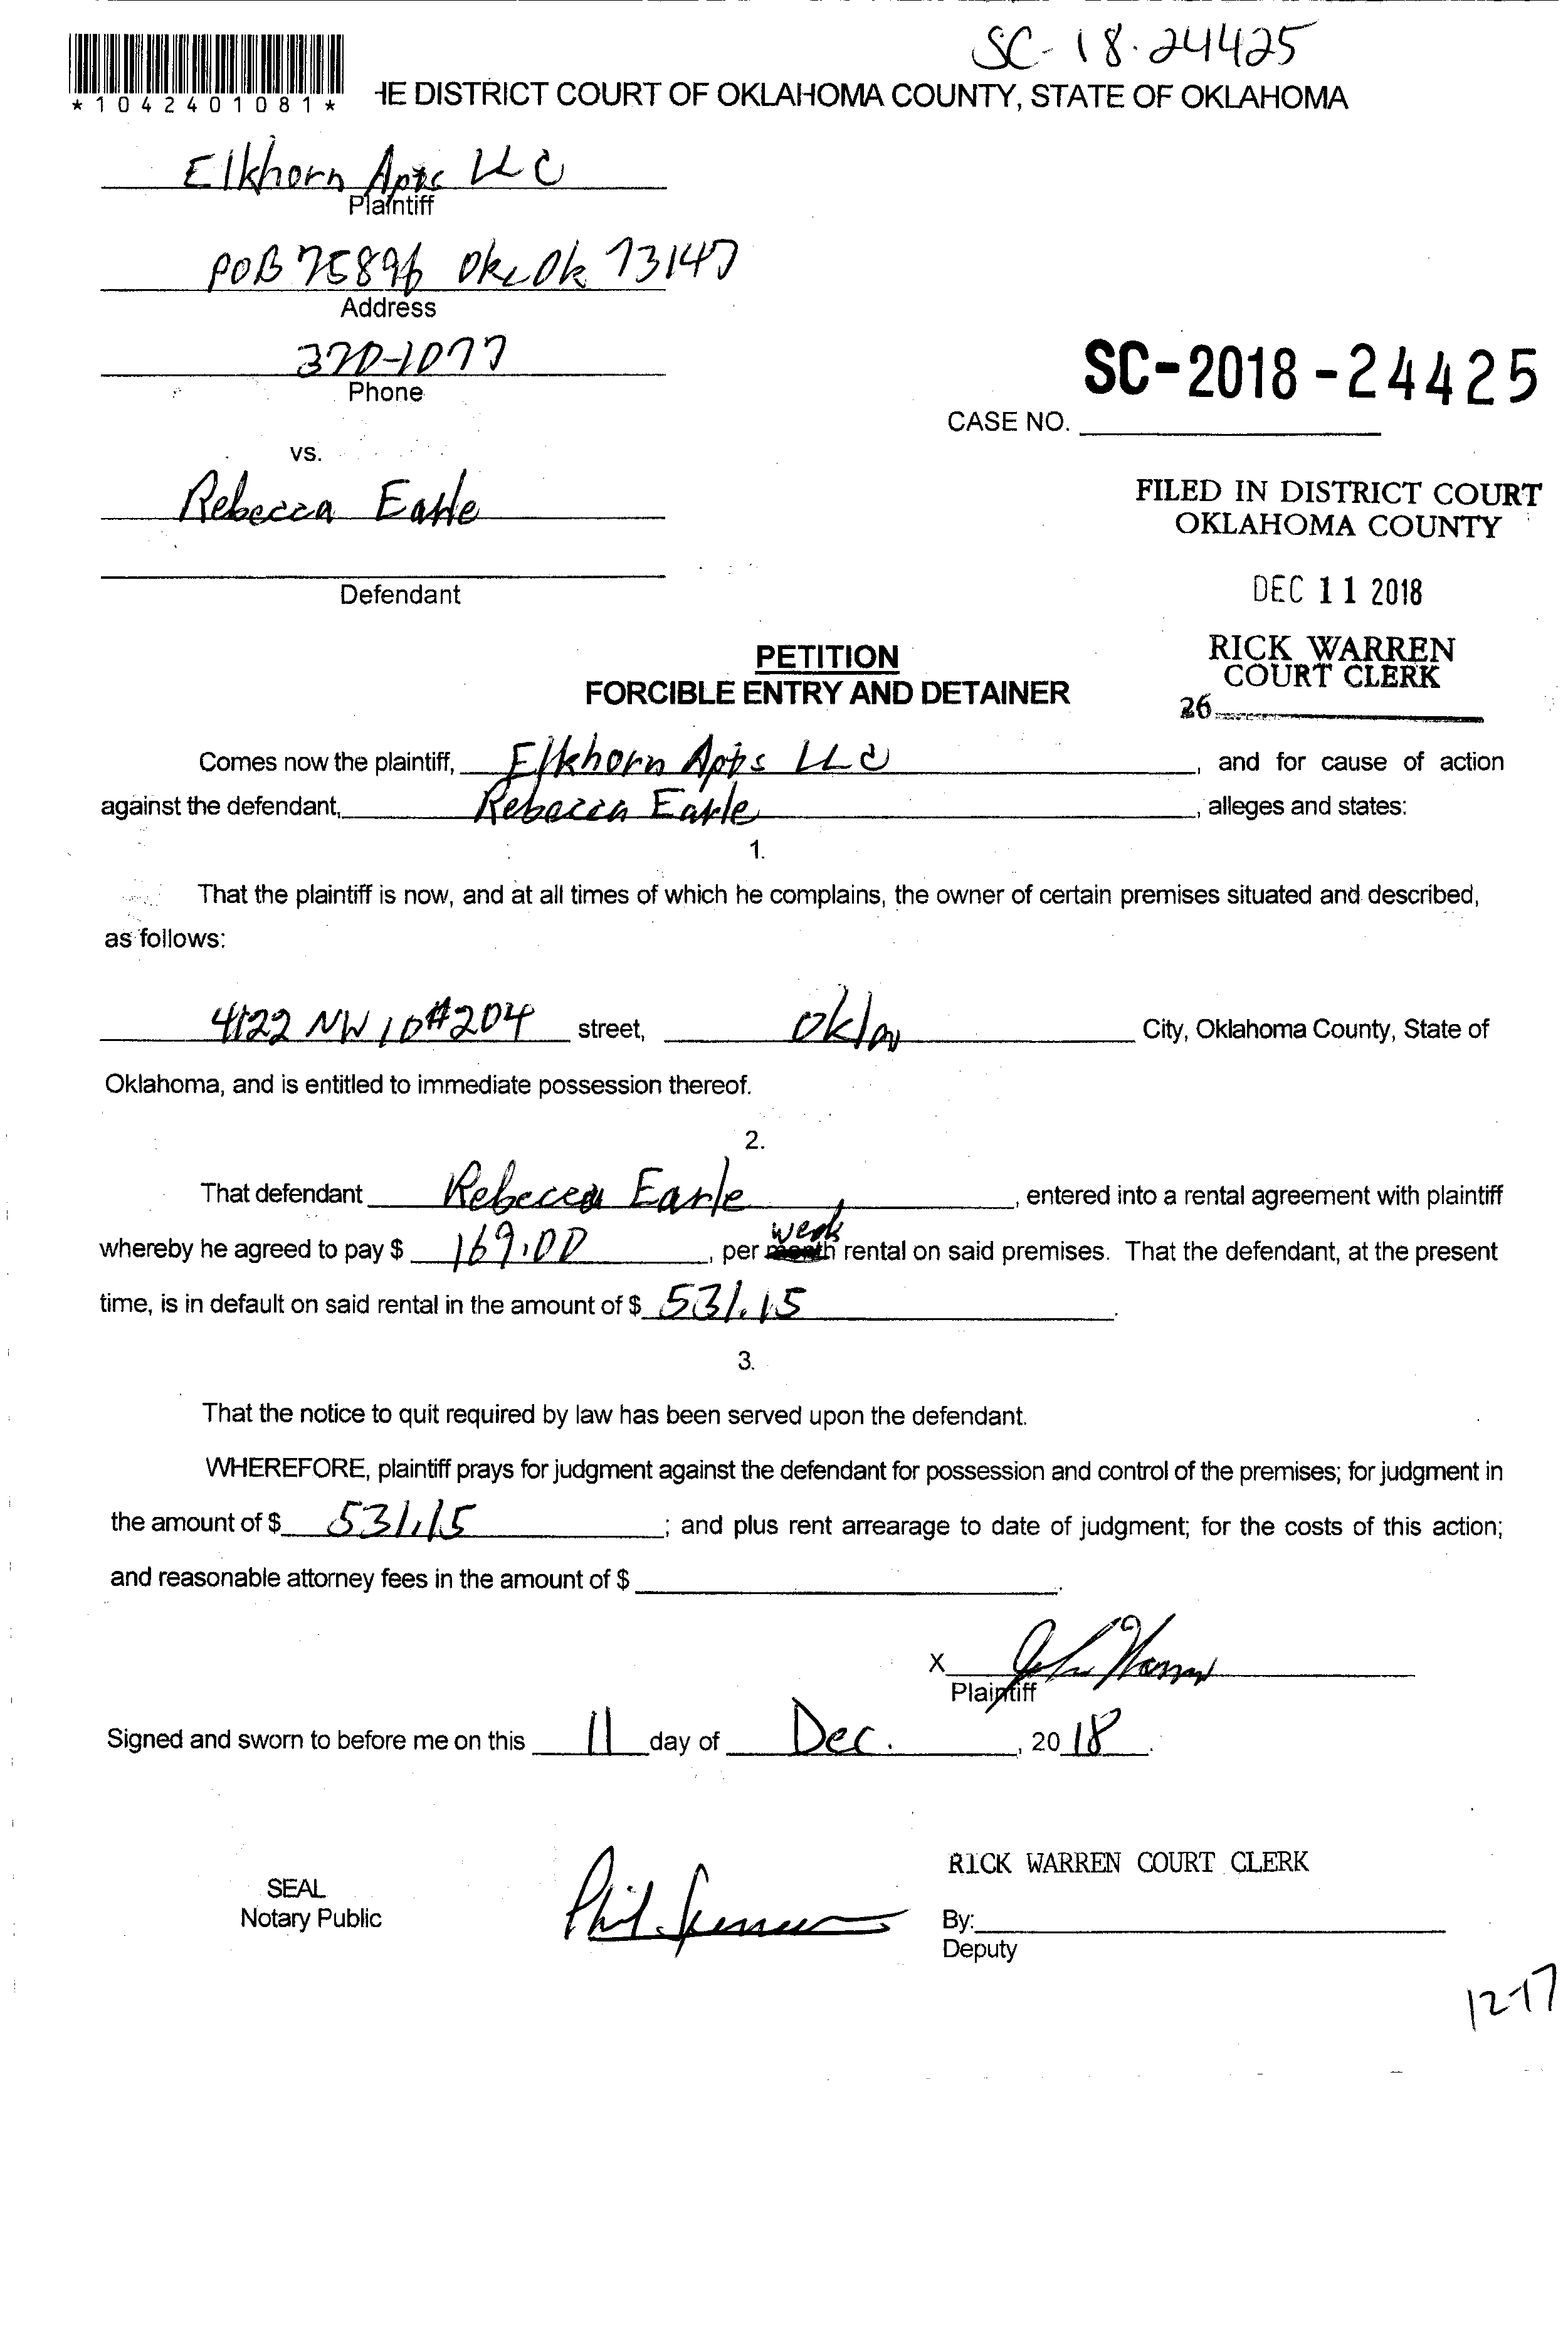 SC-18-24425
*1042401081*
HE DISTRICT COURT OF OKLAHOMA COUNTY, STATE OF OKLAHOMA
Elkhorn Apts LLC
Plaintiff
POB 75896 Okc Ok 73147
Address
370-1077
Phone
SC-2018-24425
CASE NO.
vs.
Rebecca Earle
FILED IN DISTRICT COURT
OKLAHOMA COUNTY
Defendant
DEC 11 2018
PETITION
FORCIBLE ENTRY AND DETAINER
RICK WARREN
COURT CLERK
26
Comes now the plaintiff, Elkhorn Apts LLC, and for cause of action
against the defendant, Rebecca Earle, alleges and states:
1.
That the plaintiff is now, and at all times of which he complains, the owner of certain premises situated and described,
as follows:
4122 NW 10 #204 street, Okla City, Oklahoma County, State of
Oklahoma, and is entitled to immediate possession thereof.
2.
That defendant Rebecca Earle, entered into a rental agreement with plaintiff
whereby he agreed to pay $ 169.00, per month week rental on said premises. That the defendant, at the present
time, is in default on said rental in the amount of $ 531.15.
3.
That the notice to quit required by law has been served upon the defendant.
WHEREFORE, plaintiff prays for judgment against the defendant for possession and control of the premises; for judgment in
the amount of $ 531.15; and plus rent arrearage to date of judgment; for the costs of this action;
and reasonable attorney fees in the amount of $ .
X
Plaintiff
Signed and sworn to before me on this 11 day of Dec., 2018.
RICK WARREN COURT CLERK
SEAL
Notary Public
Phil
By:
Deputy
12-17